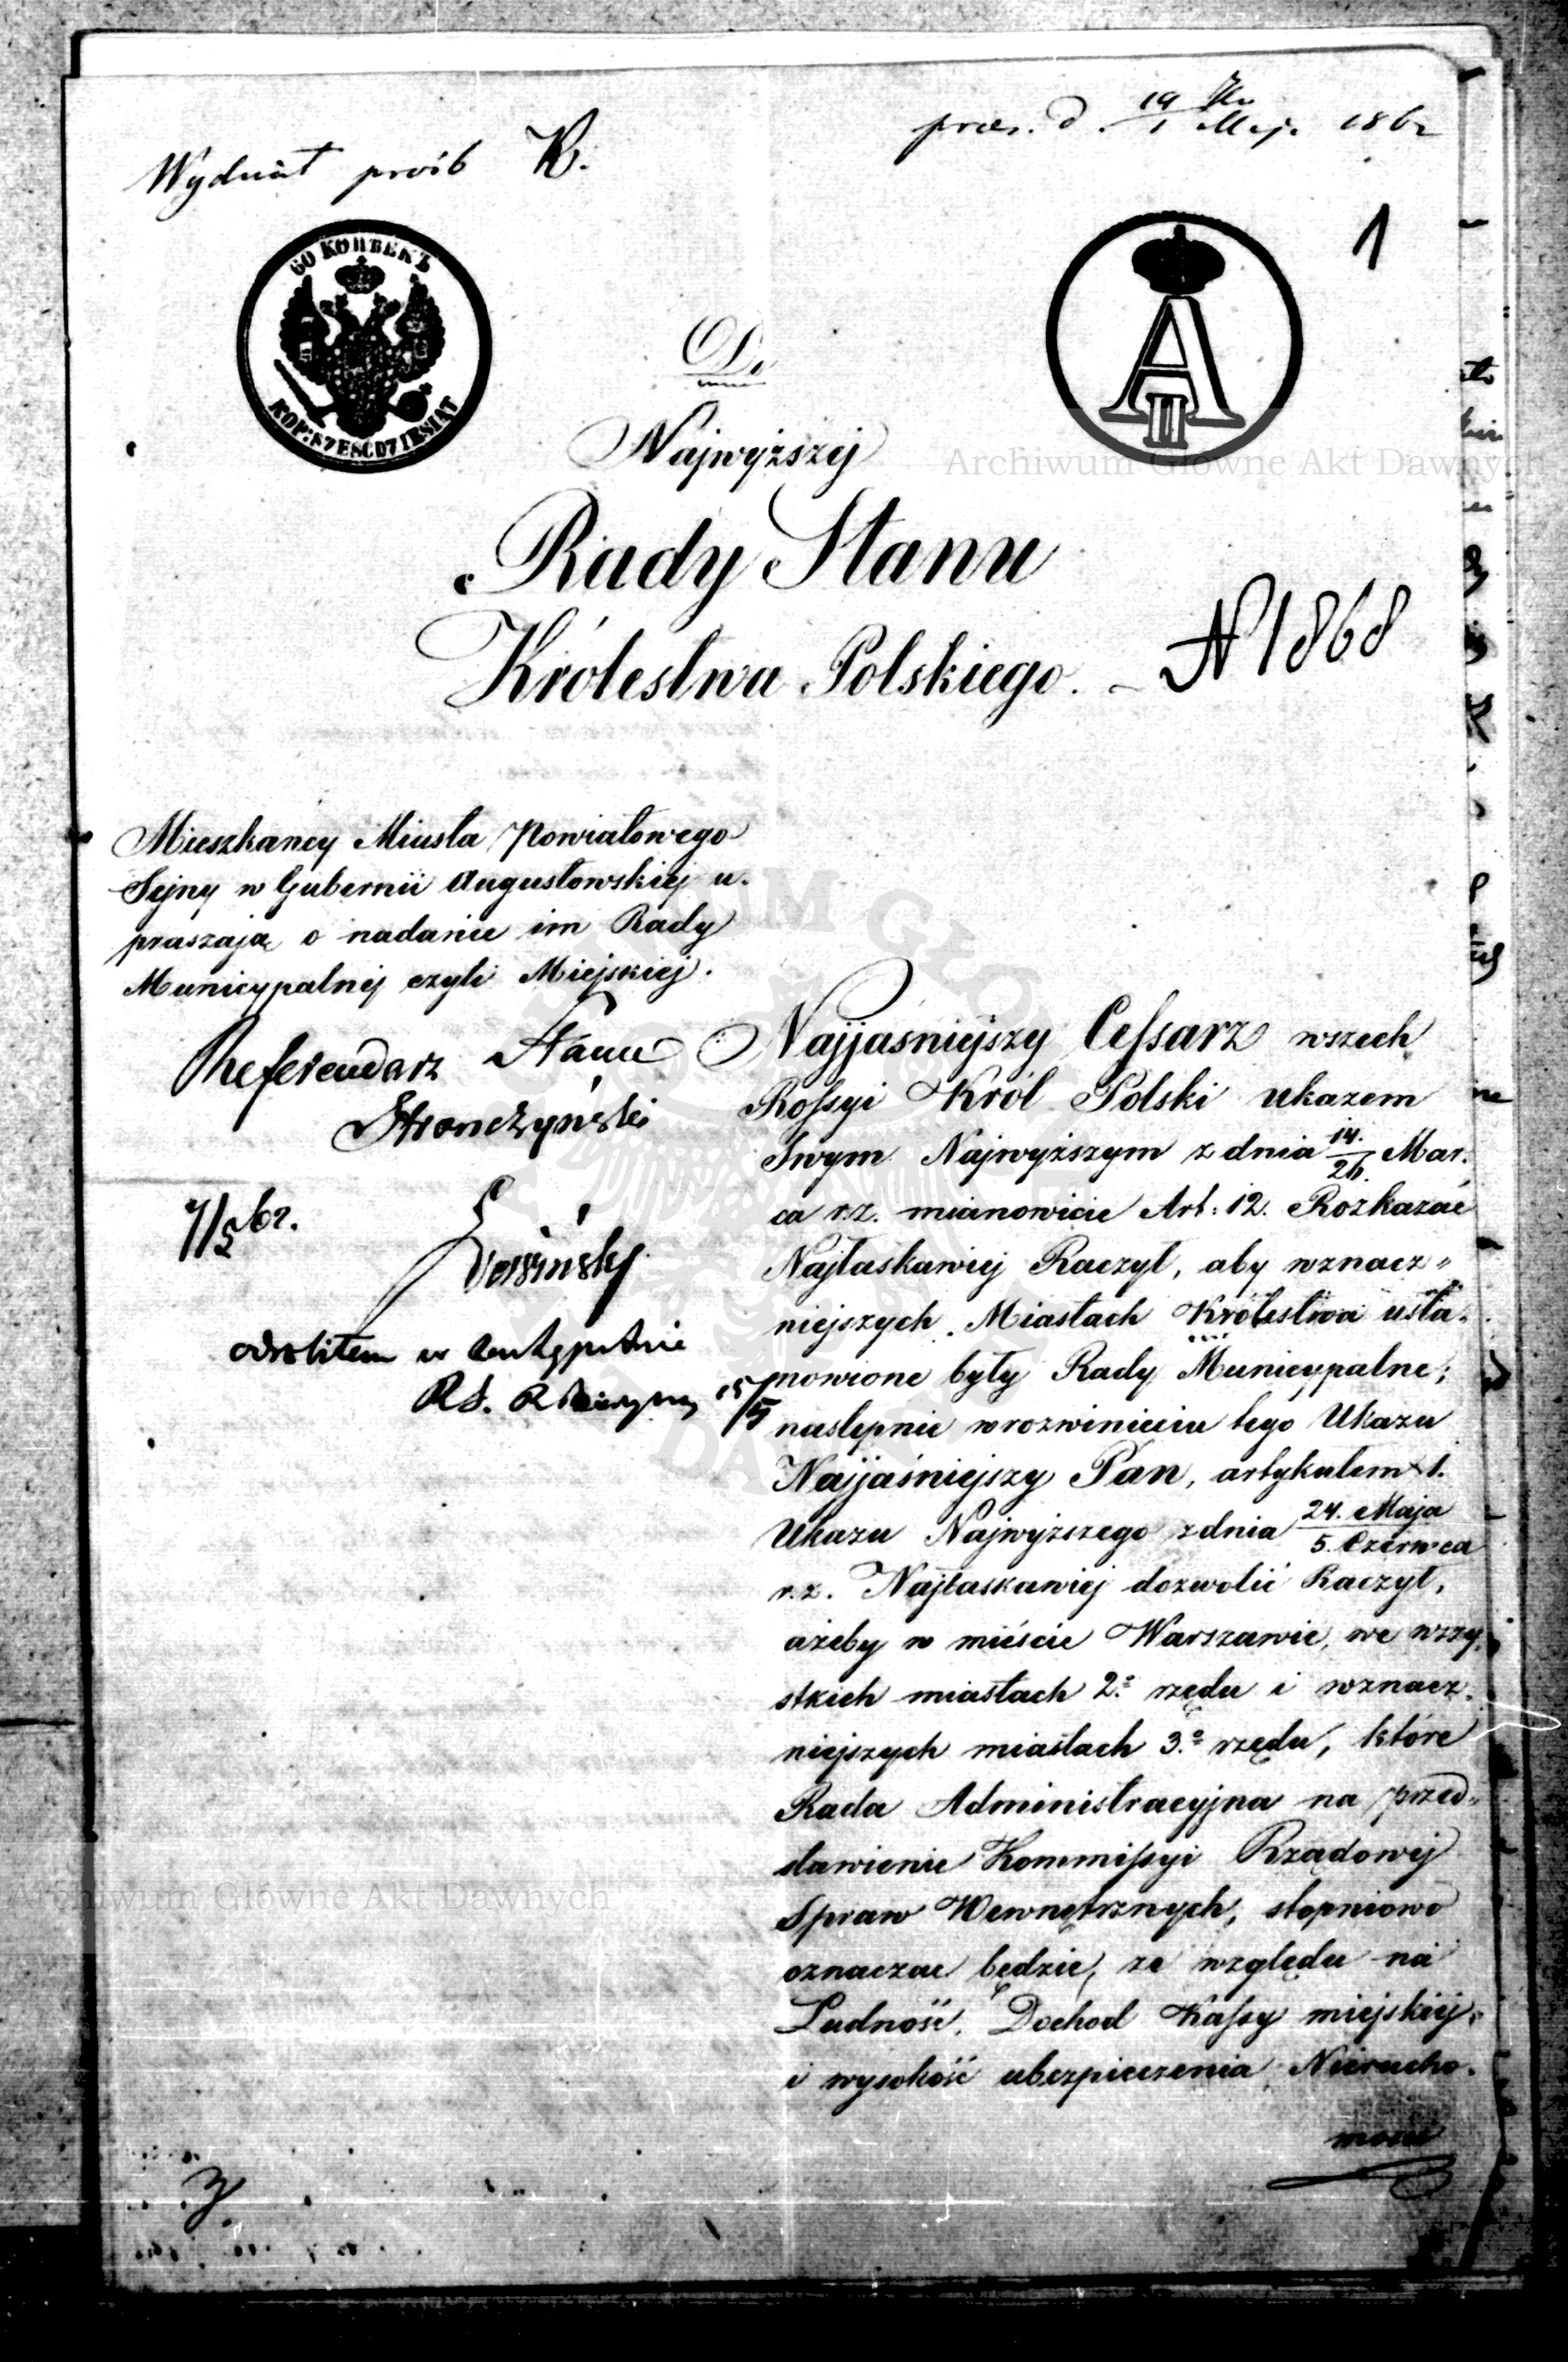 Wydział próśb R.
prez. d. 19/1 Maja 1862
1
60 КОПѢЕКЪ
KOP: SZEŚĆDZIESIĄT
A II
Do
Najwyższej
Rady Stanu
Królestwa Polskiego.
N 1868
Mieszkancy Miasta Powiatowego
Sejny w Gubernii Augustowskiej u-
praszają o nadanie im Rady
Municypalnej czyli Miejskiej.
Referendarz Stanu
Stronczyński
7/5 62.
15/5
Najjasniejszy Cessarz wszech
Rossyi Król Polski ukazem
Swym Najwyższym z dnia 14./26. Mar-
ca r.z. mianowicie Art: 12. Rozkazać
Najłaskawiej Raczył, aby wznacz-
niejszych Miastach Królestwa usta-
nowione były Rady Municypalne;
następnie w rozwinieciu tego Ukazu
Najjaśniejszy Pan, artykułem 1.
Ukazu Najwyższego z dnia 24. Maja/5. Czerwca
r.z. Najłaskawiej dozwolić Raczył,
ażeby w mieście Warszawie, we wszy-
stkich miastach 2.º rzędu i wznacz-
niejszych miastach 3.º rzędu, które
Rada Administracyjna na przed-
stawienie Kommissyi Rządowej
Spraw Wewnętrznych, stopniowo
oznaczac będzie, ze względu na
Ludność, Dochod Kassy miejskiej,
i wysokość ubezpieczenia Nierucho-
mości
Archiwum Główne Akt Dawnych
Archiwum Główne Akt Dawnych